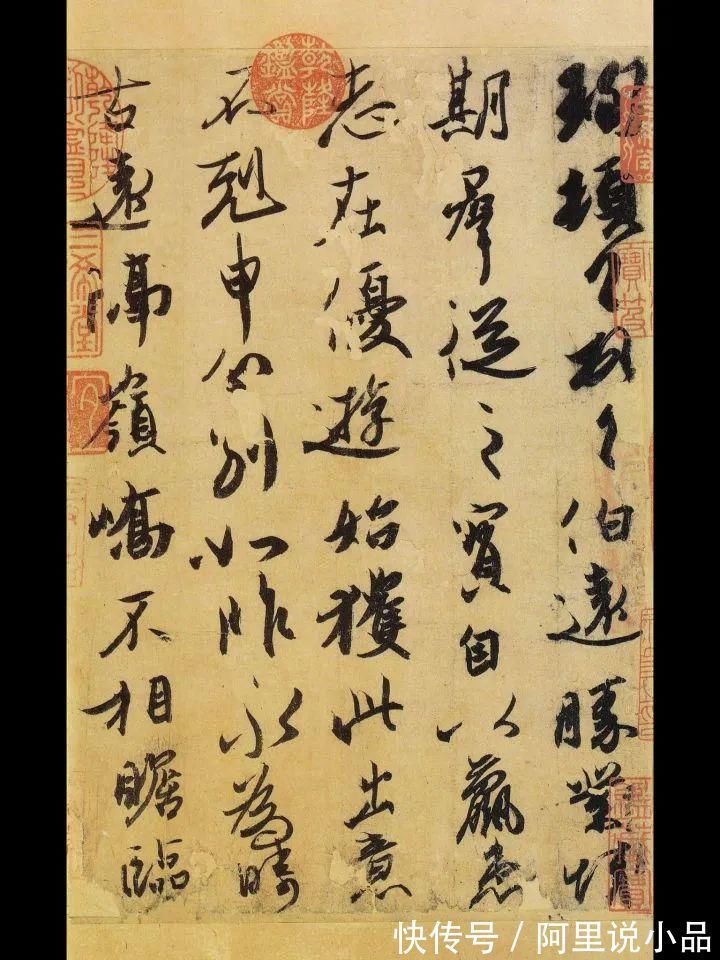 珣頓首頓首伯遠勝業情
期群從之寶自以羸患
志在優遊始獲此出意
不剋申分別如昨永為疇
古遠隔嶺嶠不相瞻臨
三希堂
快传号 / 阿里说小品